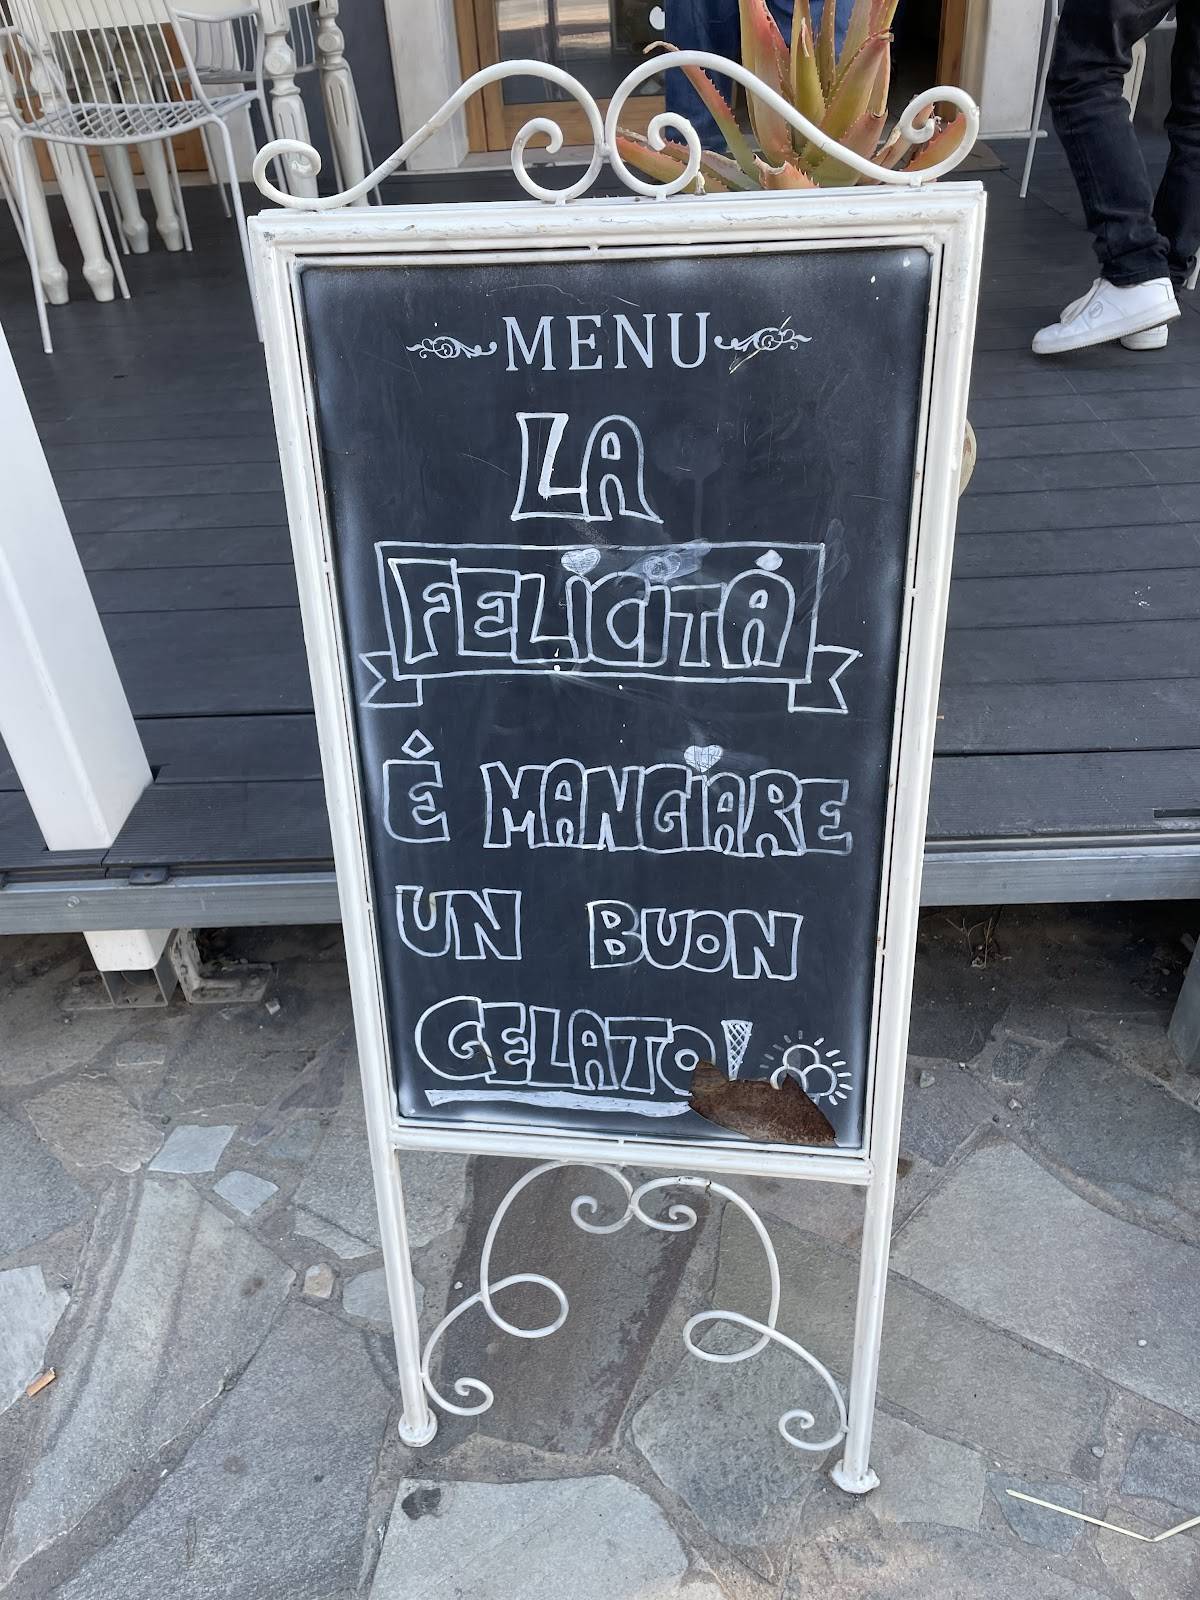 MENU
LA
FELICITÀ
È MANGIARE
UN BUON
GELATO!